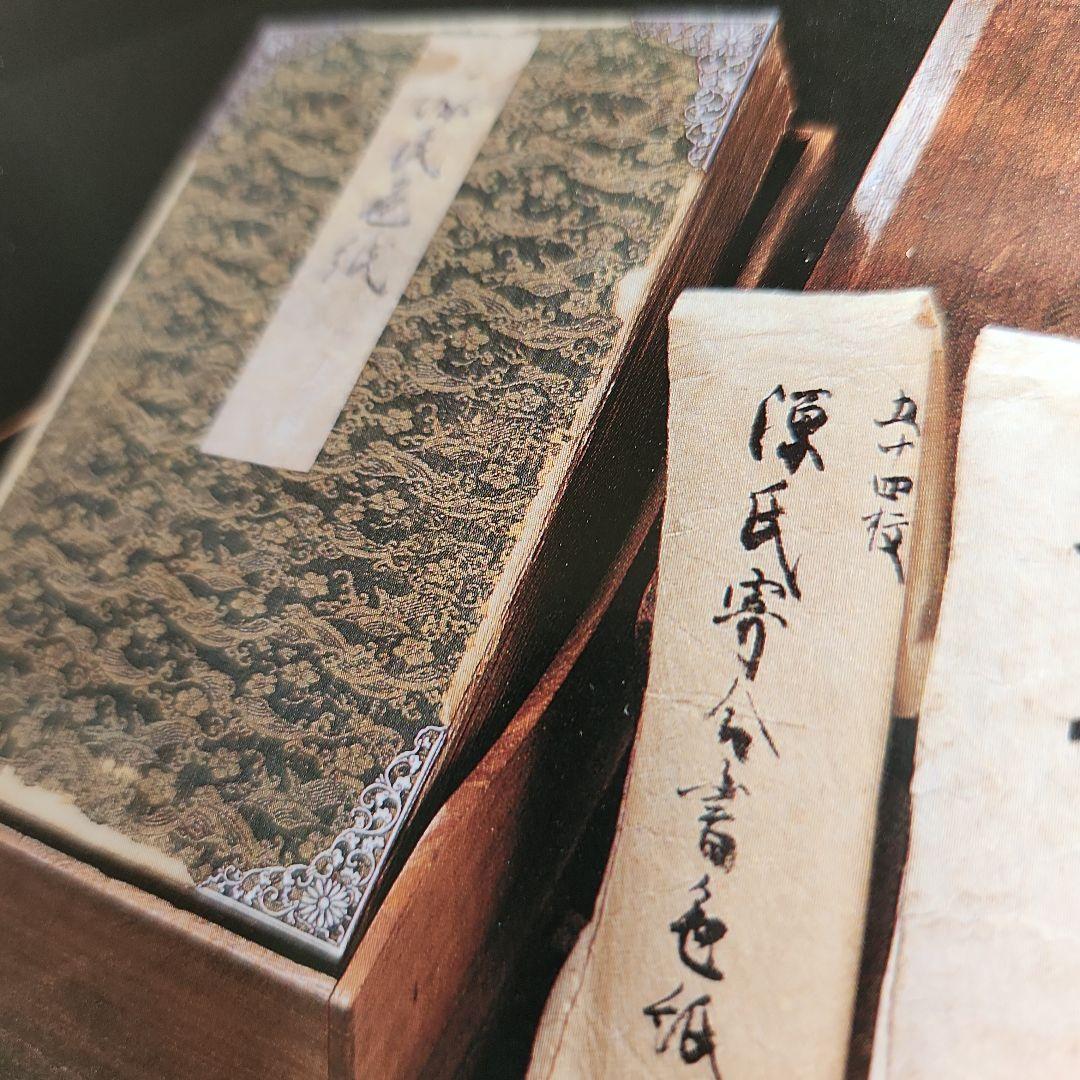 五十四枚
源氏寄合書色紙
源氏色紙